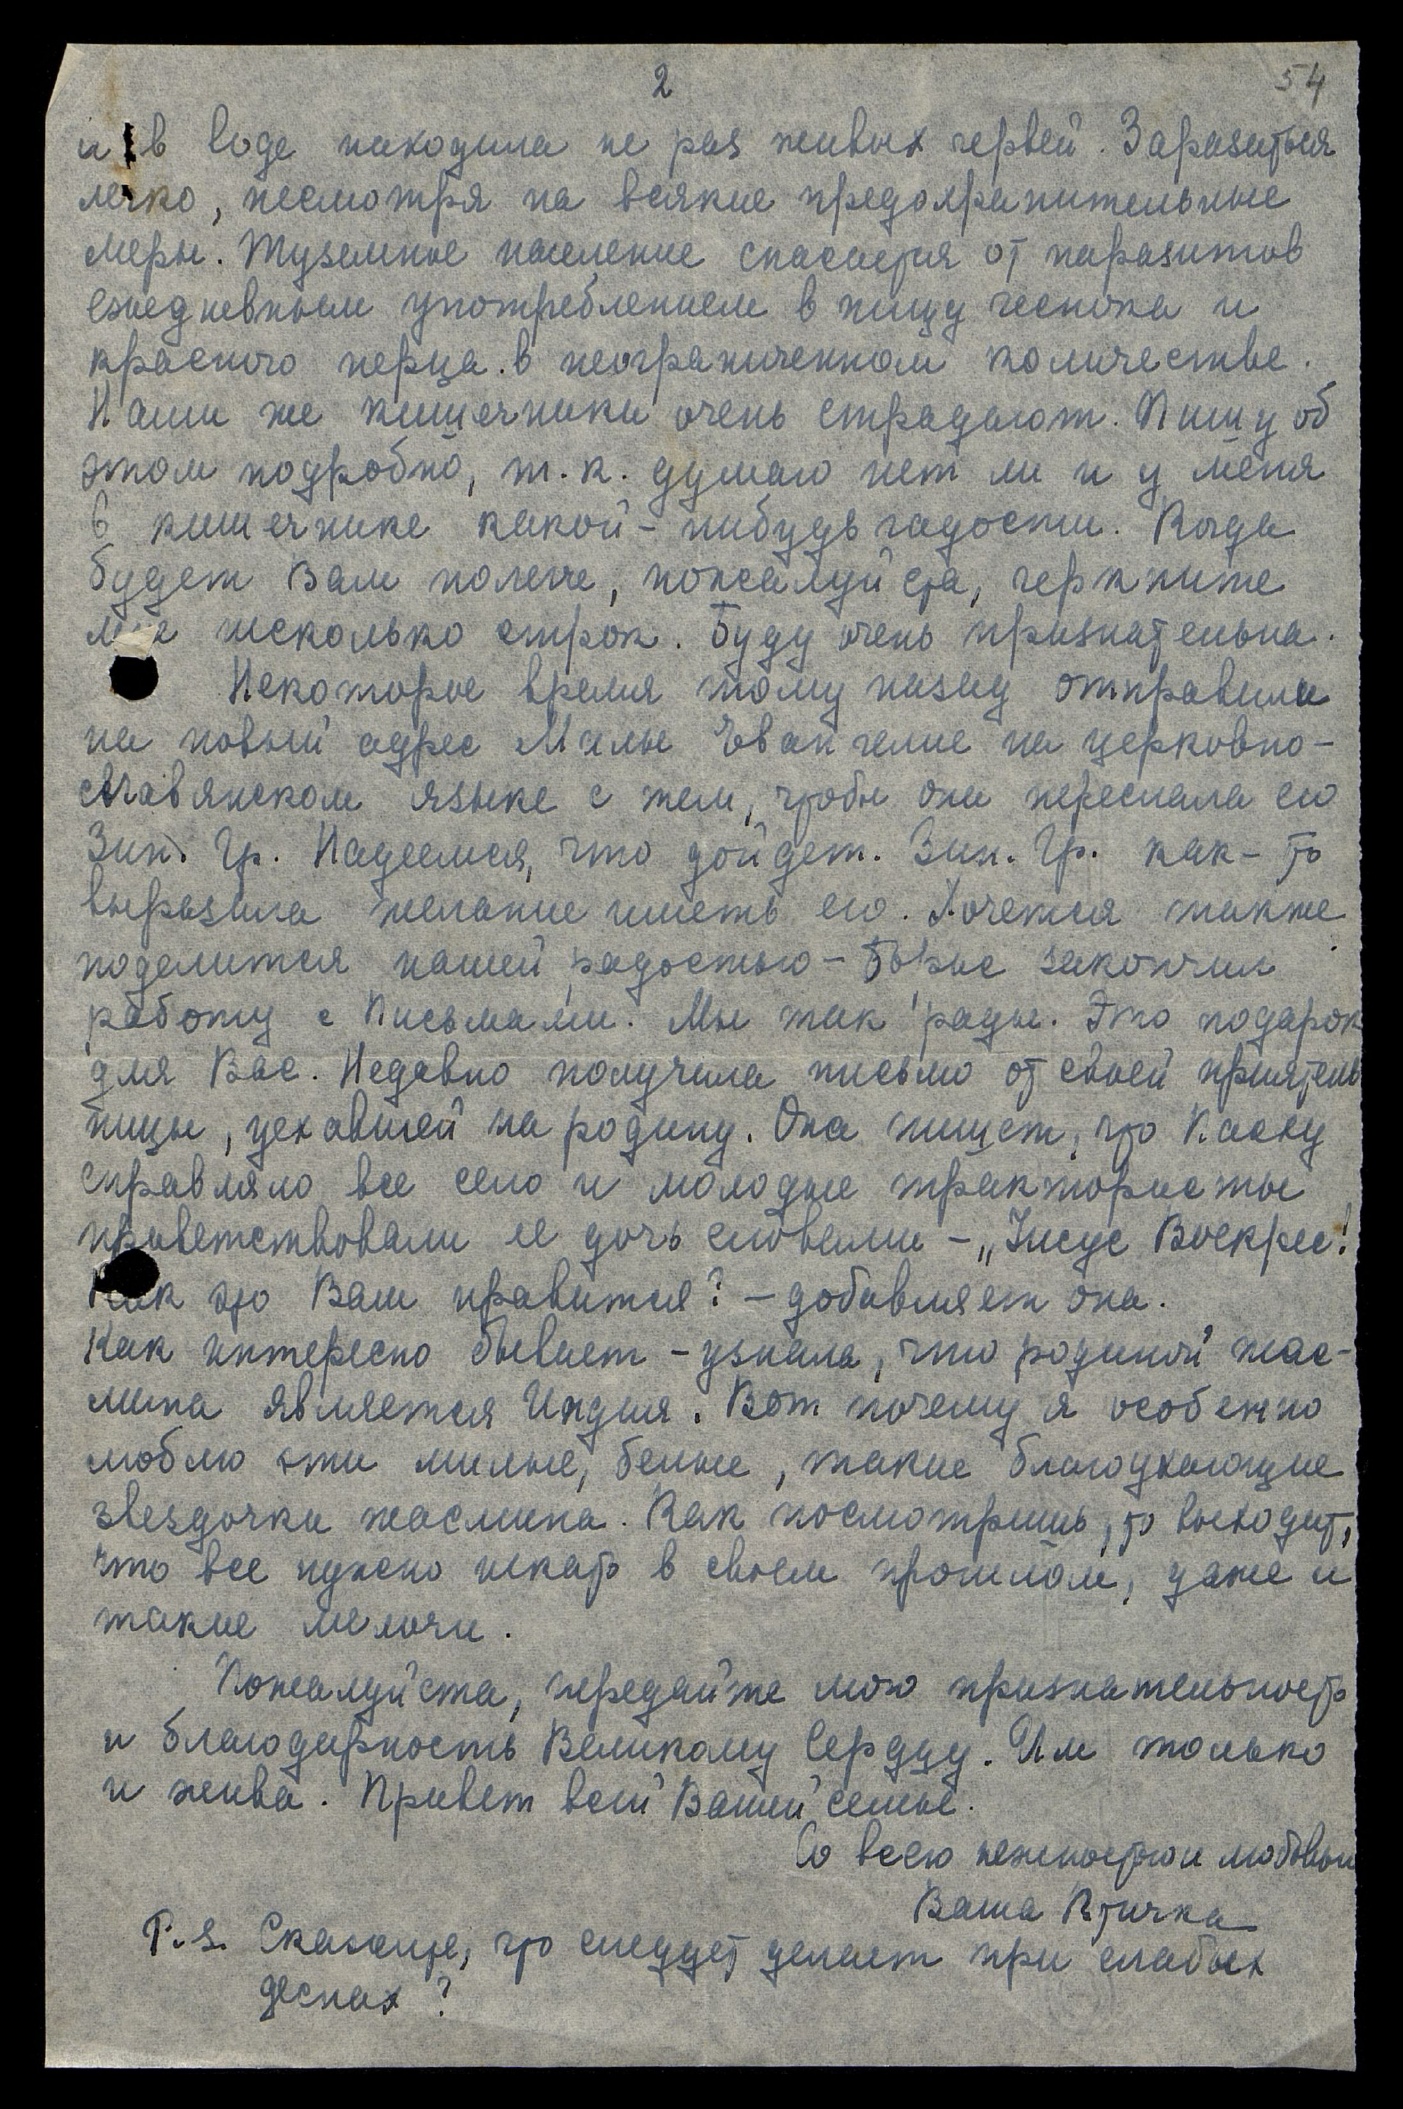 2
54
и в воде находила не раз живых червей. Заразиться
легко, несмотря на всякие предохранительные
меры. Туземное население спасается от паразитов
ежедневным употреблением в пищу чеснока и
красного перца. в неограниченном количестве.
Наши же кишечники очень страдают. Пишу об
этом подробно, т.к. думаю нет ли и у меня
в кишечнике какой-нибудь гадости. Когда
будет Вам полегче, пожалуйста, черкните
мне несколько строк. Буду очень признательна.
Некоторое время тому назад отправили
на новый адрес Милы Евангелие на церковно-
славянском языке с тем, чтобы она переслала его
Зин. Гр. Надеемся, что дойдет. Зин. Гр. как-то
выразила желание иметь его. Хочется также
поделится нашей радостью - Борис закончил
работу с Письмами. Мы так рады. Это подарок
для Вас. Недавно получила письмо от своей приятель
ницы, уехавшей на родину. Она пишет, что Пасху
справляло все село и молодые трактористы
приветствовали ее дочь словами - „Иисус Воскрес!
Как это Вам нравится? - добавляет она.
Как интересно бывает - узнала, что родиной жас-
мина является Индия. Вот почему я особенно
люблю эти милые, белые, такие благоухающие
звездочки жасмина. Как посмотришь, то выходит,
что все нужно искать в своем прошлом, даже и
такие мелочи.
Пожалуйста, передайте мою признательность
и благодарность Великому Сердцу. Им только
и жива. Привет всей Вашей семье.
Со всею нежностью и любовью
Ваша Птичка
P.S. Скажите, что следует делает при слабых
деснах?